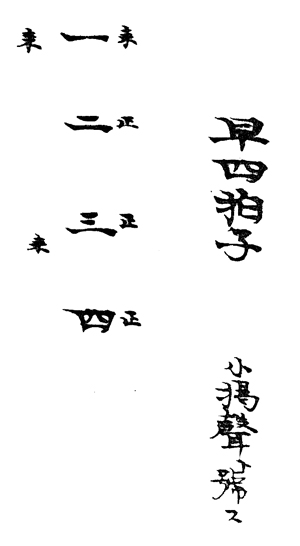 早四拍子 小揭聲ト號ス
来 正 正 正
一 二 三 四
来 来